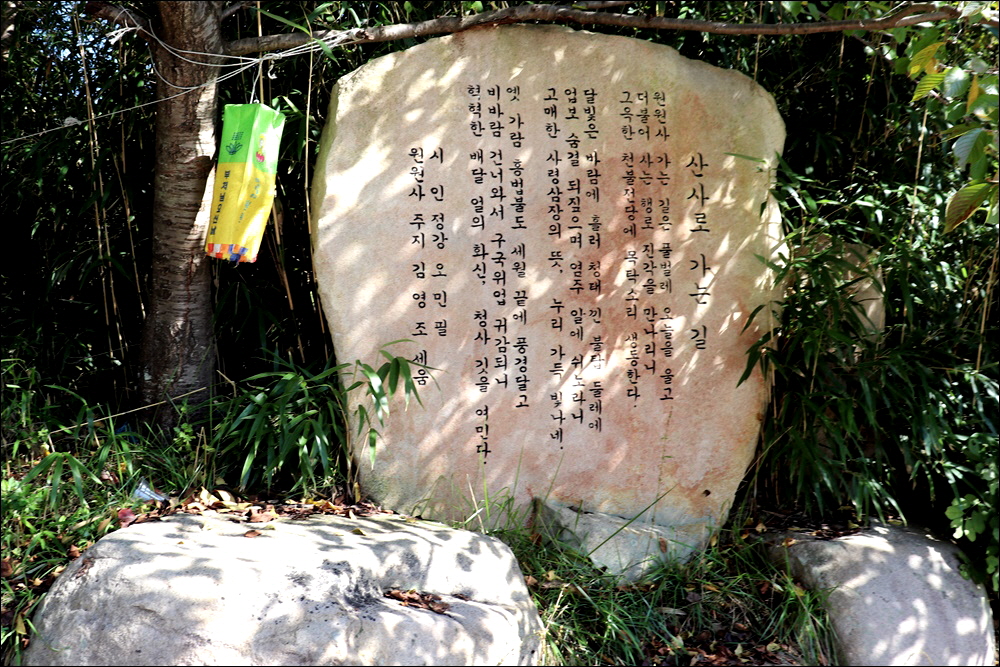 산사로 가는 길
원원사 가는 길은 풀벌레 오늘을 울고
더불어 사는 행로 진각을 만나리니
그윽한 천불전당에 목탁소리 생동한다.
달빛은 바람에 흘러 청태 낀 불탑 둘레에
업보 숨결 되짚으며 염주 알에 쉬노라니
고매한 사령삼장의 뜻, 누리 가득 빛나네.
옛 가람 흥범불도 세월 끝에 풍경달고
비바람 건너와서 구국위업 귀감되니
혁혁한 배달 얼의 화신, 청사 깃을 여민다.
시 인 정강 오 민 필
원원사 주지 김 영 조 세움